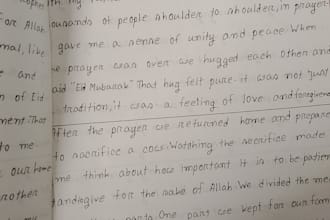 other
for Allah
mal, like
e and
n of Eid
ment. That
to me
our home
rother
thousands of people shoulder to shoulder, in prayer
gave me a sense of unity and peace. When
prayer was over we hugged each other and
aid "Eid Mubarak" That hug felt pure. it was not just
tradition, it was a feeling of love and forgiveness
After the prayer we returned home and prepare
to sacrifice a cow. Watching the sacrifice made
me think about how important it is to be patien
and give for the sake of Allah. We divided the me
parts. One part we kept for our fam